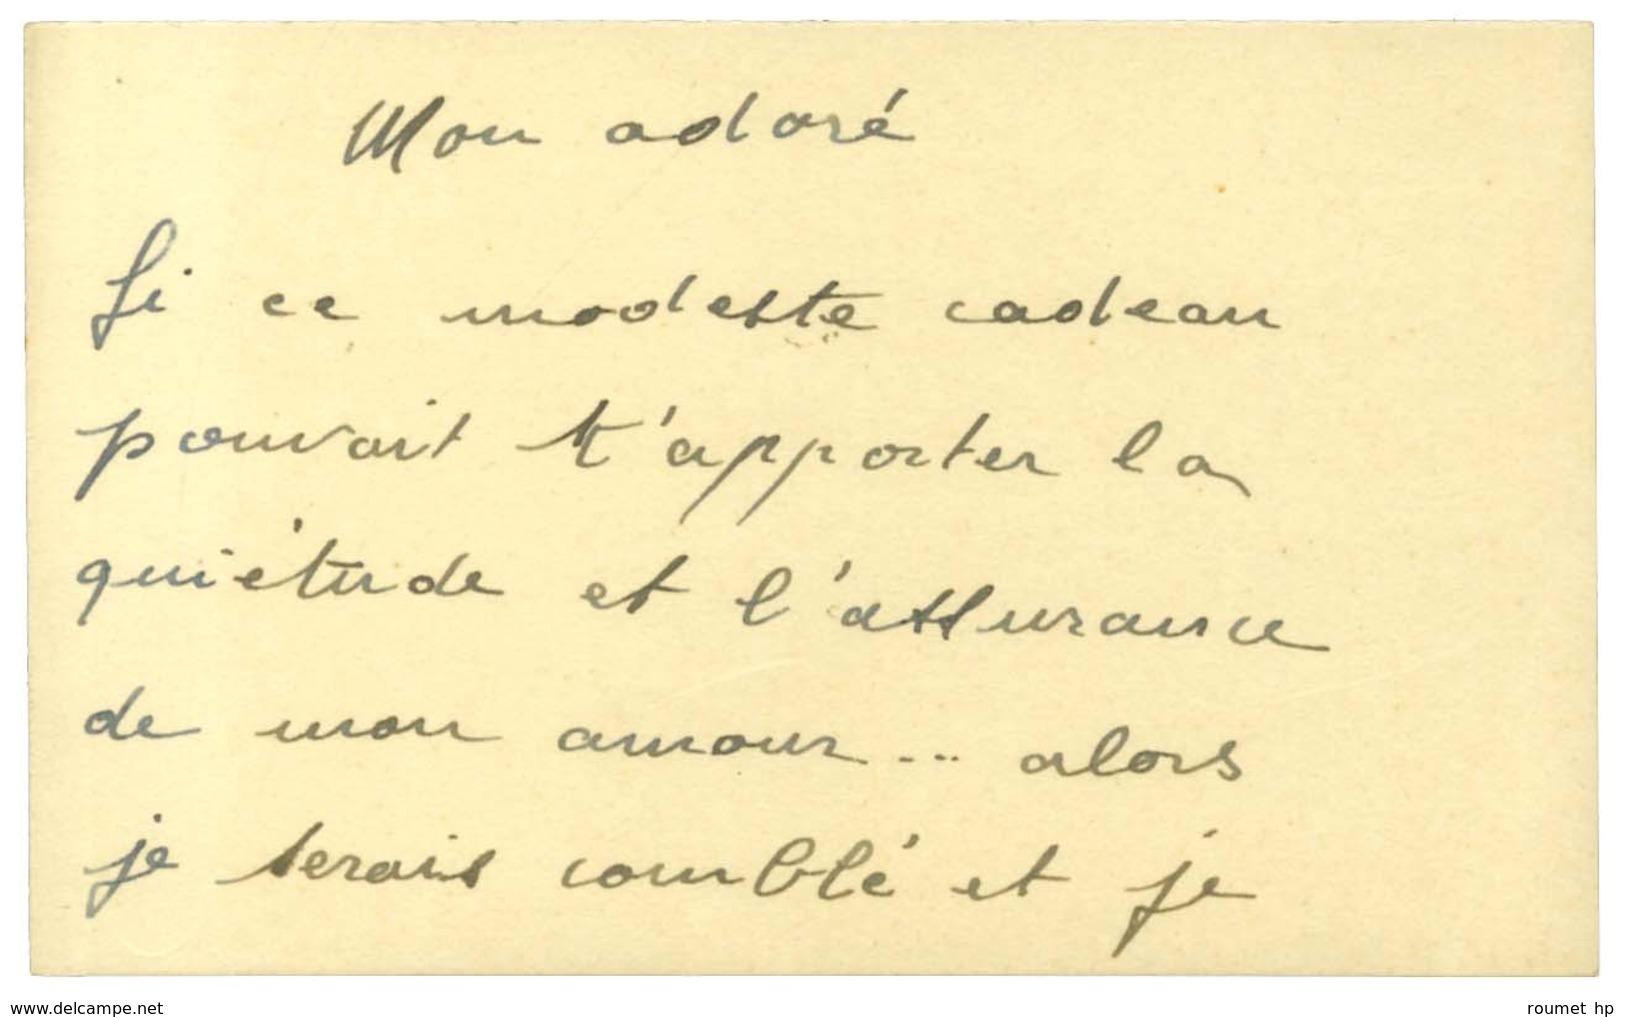 Mon adoré
Si ce modeste cadeau
pouvait t'apporter la
quiétude et l'assurance
de mon amour... alors
je serais comblé et je
www.delcampe.net
roumet hp